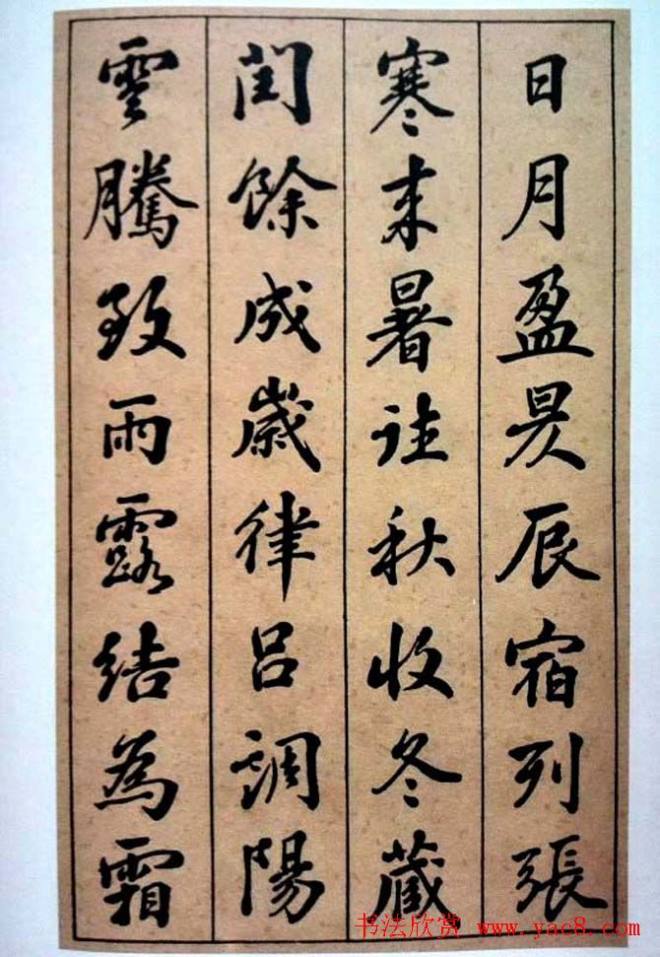 日月盈昃辰宿列張
寒来暑往秋收冬蔵
閏餘成歲律呂調陽
雲騰致雨露結為霜
书法欣赏 www.yac8.com